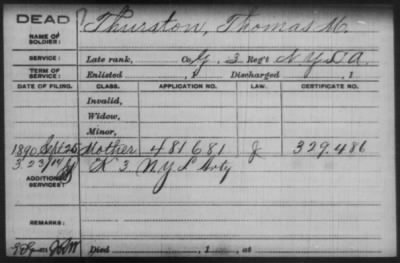 DEAD
NAME OF SOLDIER: Thurston, Thomas M.
SERVICE: Late rank, Co. G, 3 Reg't N Y L A.
TERM OF SERVICE: Enlisted , 1 Discharged , 1
DATE OF FILING. CLASS. APPLICATION NO. LAW. CERTIFICATE NO.
Invalid,
Widow,
Minor,
1890 Sept 25 Mother 481681 J 329.486
ADDITIONAL SERVICES: K 3 N Y L Arty
REMARKS:
Died , 1 , at